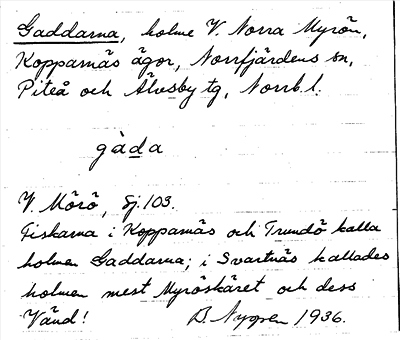 Gaddarna, holme V. Norra Myrön,
Kopparnäs ägor, Norrfjärdens sn,
Piteå och Älvsby tg, Norrb. l.
gàda
V. Mörö, Sj. 103.
Fiskarna i Kopparnäs och Trundö kalla
holmen Gaddarna; i Svartnäs kallades
holmen mest Myröskäret och dess
Vänd! B. Nygren 1936.